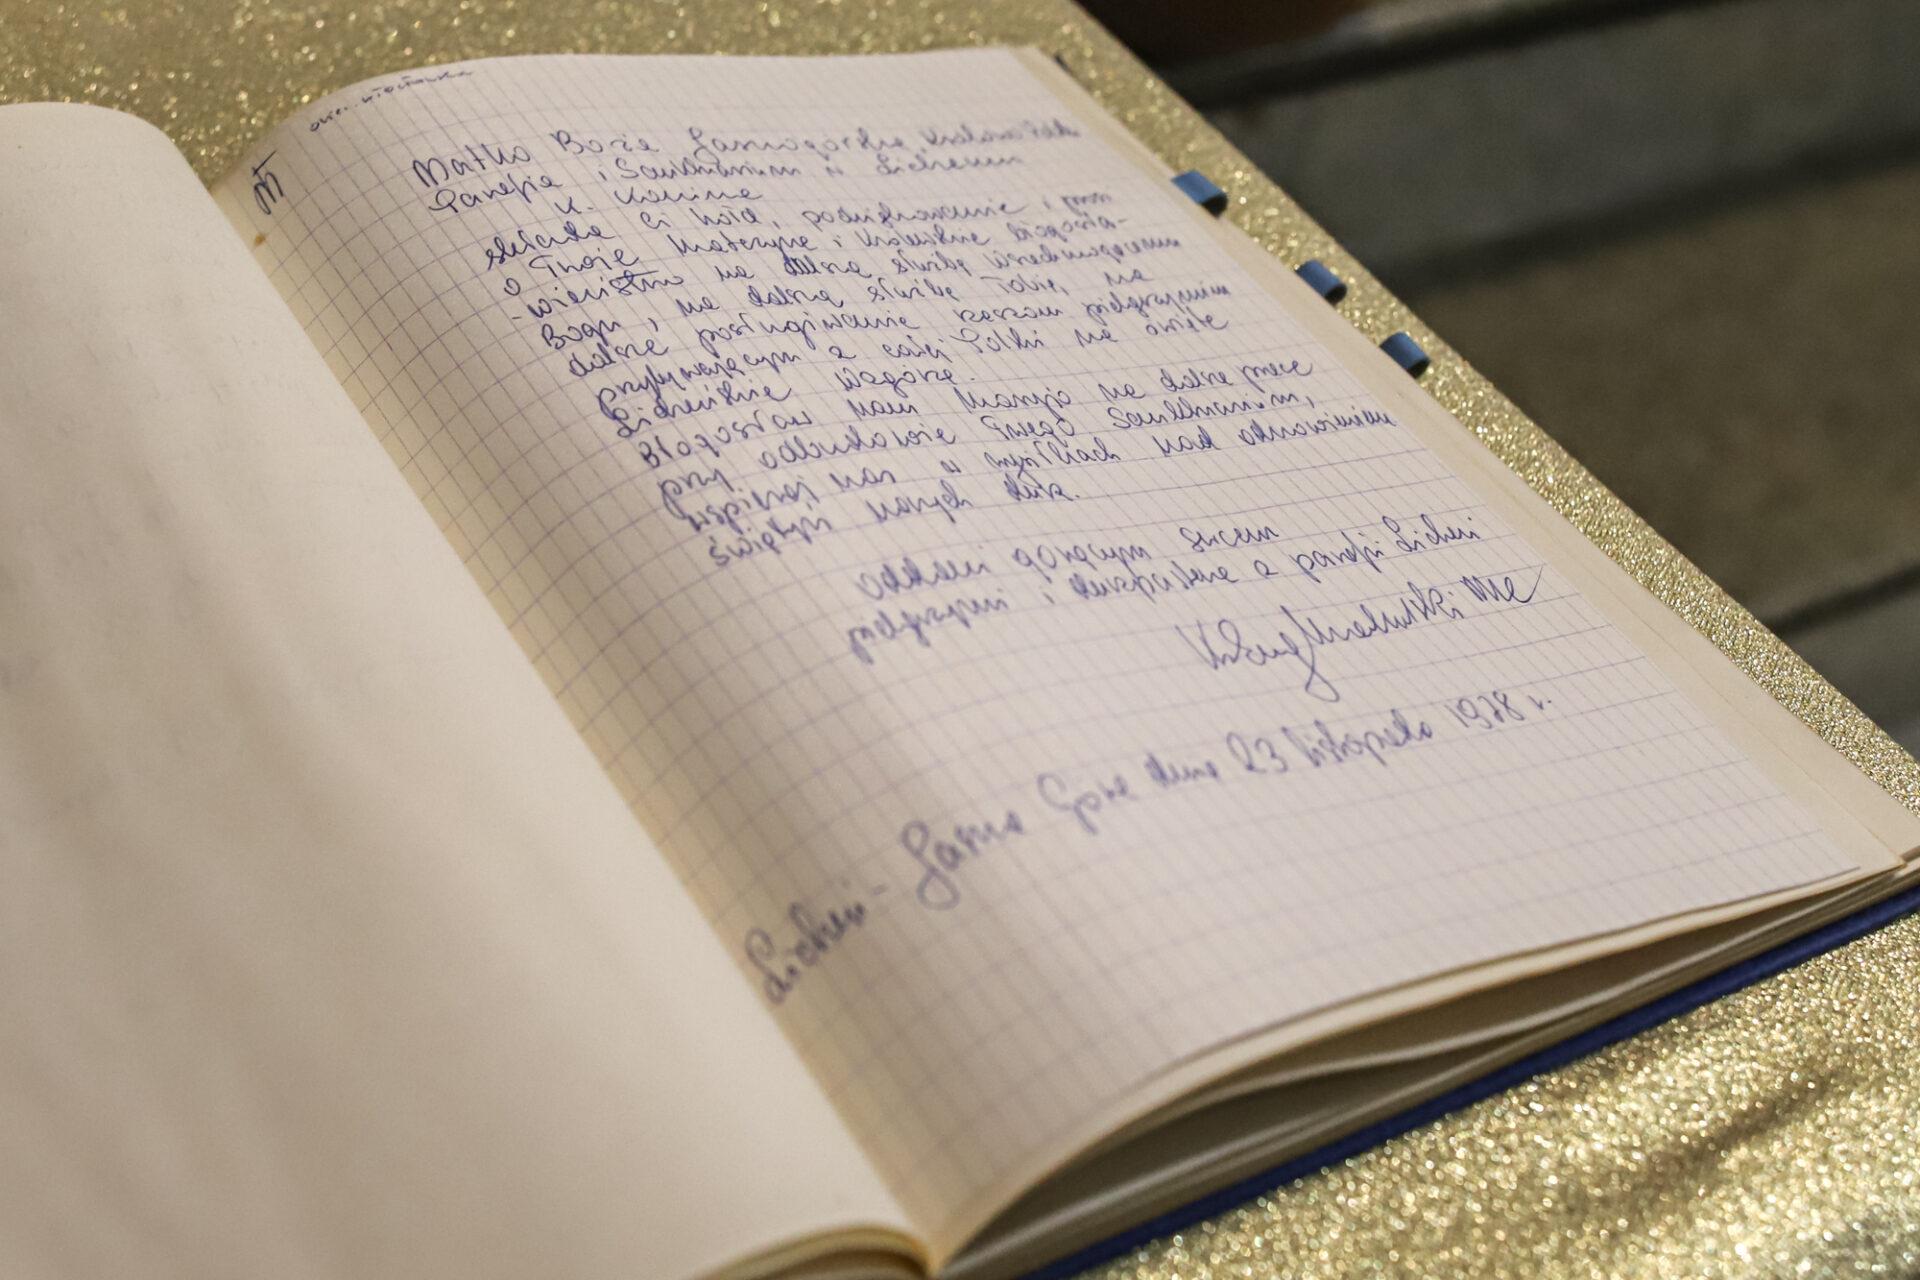 Matko Boża Jasnogórska, Królowo Polski
Parafia i Sanktuarium w Licheniu
k. Konina
składa Ci hołd, podziękowanie i prosi
o Twoje Matczyne i Królewskie błogosła-
-wieństwo na dalszą służbę Wszechmogącemu
Bogu, na dalszą służbę Tobie, na
dalsze posługiwanie rzeszom pielgrzymim
przybywającym z całej Polski na święte
Licheńskie Wzgórze.
Błogosław nam Maryjo na dalsze prace
przy odbudowie Twego Sanktuarium,
wspieraj nas w myślach nad odnowieniem
świątyń naszych dusz.
Oddani gorącym sercem
pielgrzymi i duszpasterze z parafji Licheń
Licheń - Jasna Góra dnia 23 listopada 1978 r.